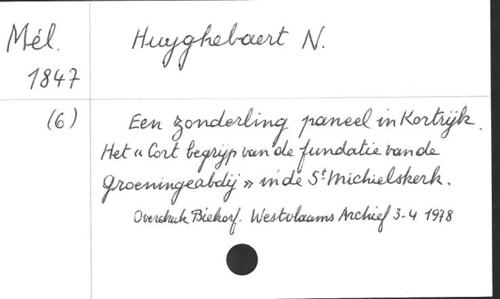 Mél.
1847
(6)
Huyghebaert N.
Een zonderling paneel in Kortrijk.
Het "Cort begrijp van de fundatie van de
groeningeabdij" in de St Michielskerk.
Overdruk Biekorf. Westvlaams Archief 3-4 1978